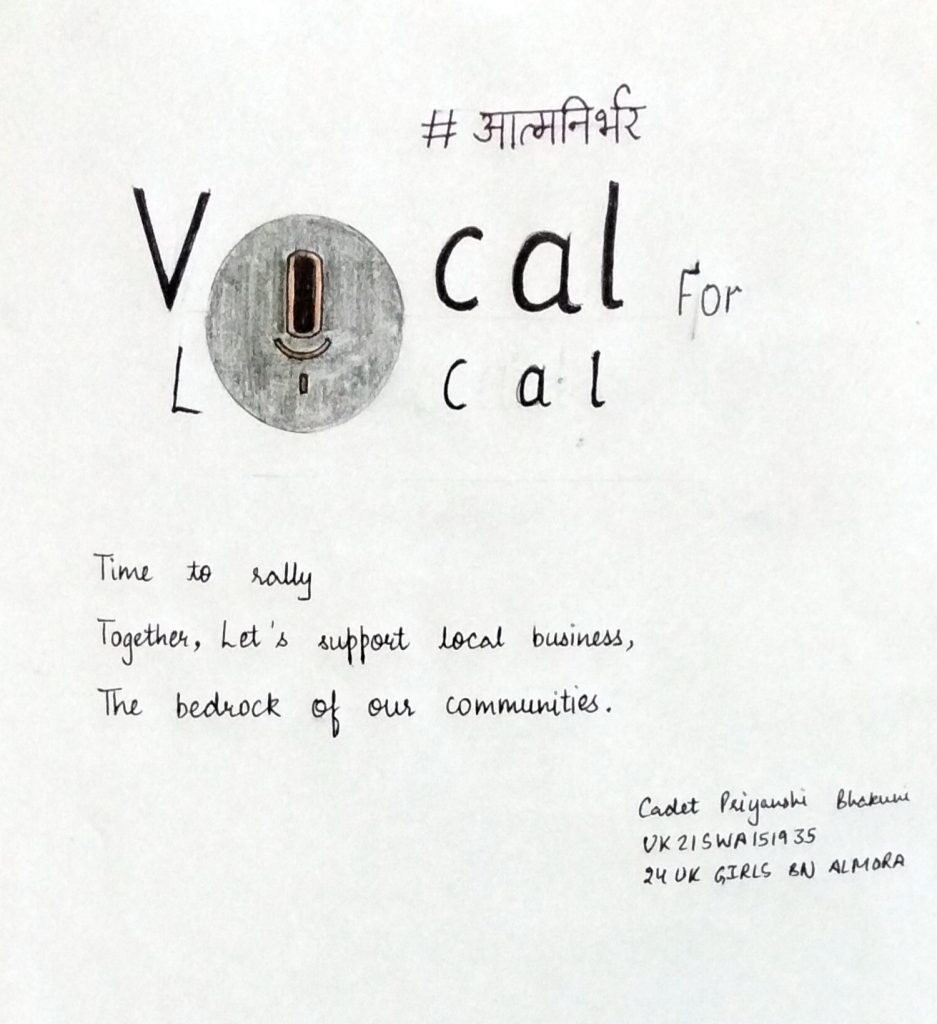 # आत्मनिर्भर
Vocal For
Local
Time to rally
Together, Let's support local business,
The bedrock of our communities.
Cadet Priyanshi Bhakuni
UK21SWA151935
24 UK GIRLS BN ALMORA